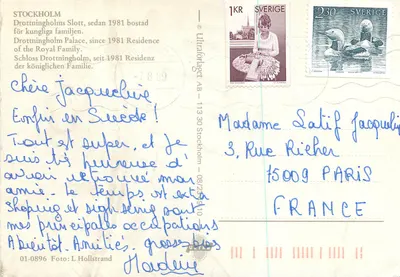 STOCKHOLM
Drottningholms Slott, sedan 1981 bostad
för kungliga familjen.
Drottningholm Palace, since 1981 Residence
of the Royal Family.
Schloss Drottningholm, seit 1981 Residenz
der königlichen Familie.
Chère Jacqueline
Enfin en Suède!
Tout est super, et je
suis très heureuse d'
avoir retrouvé mon
amie. Le temps est
shoping et sigh seing sont
mes principales occupations
A bientôt. Amitiés, grosses bises
01-0896 Foto: L Hallstrand
Ultraförlaget AB - 113 30 Stockholm - 08/728
1KR SVERIGE
2.30 SVERIGE
Madame Latif Jacqueline
3, Rue Richer
75009 PARIS
FRANCE